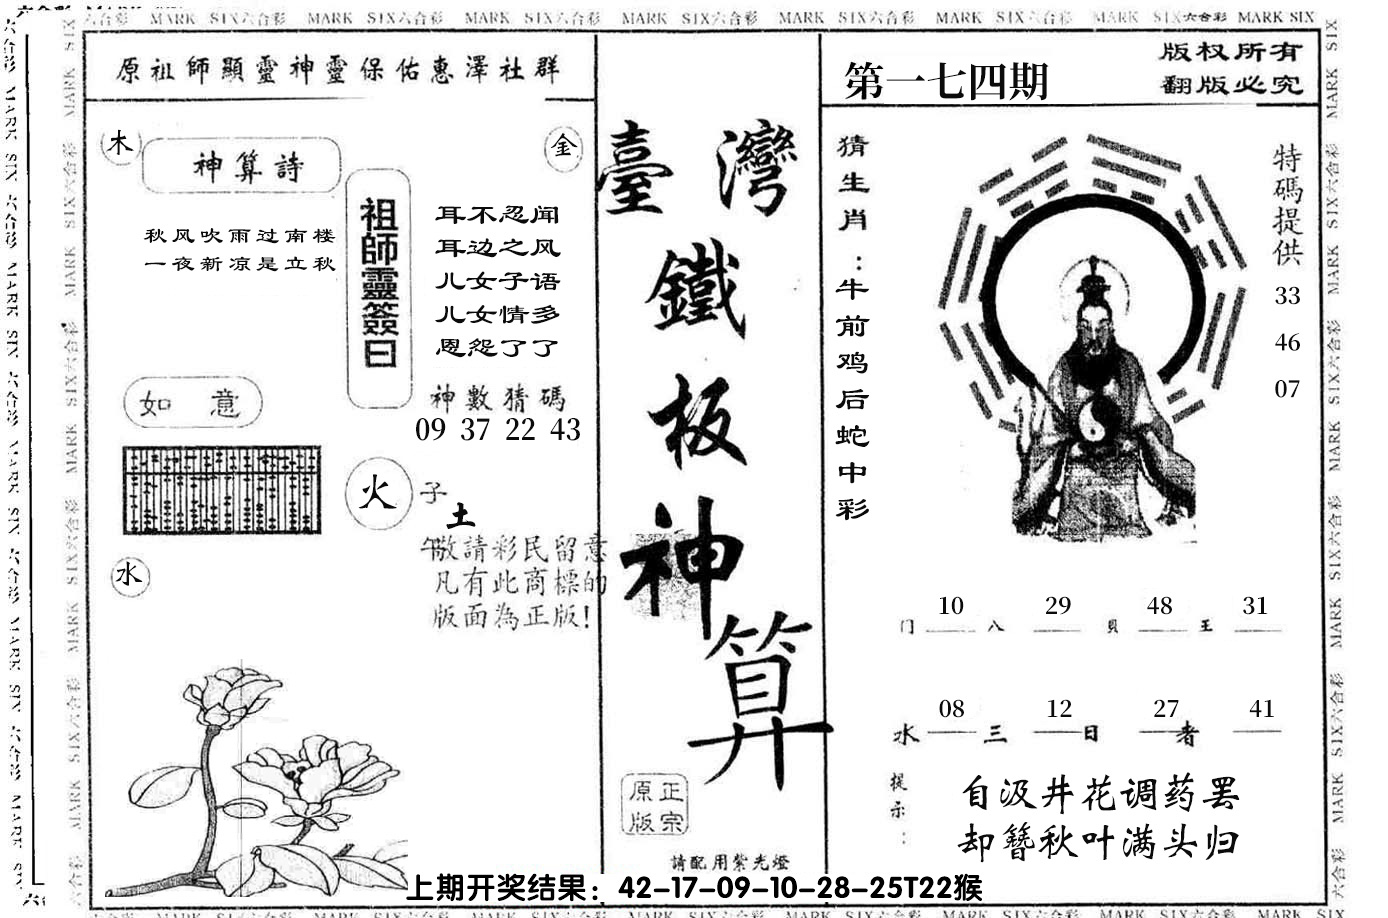 六合彩 MARK SIX六合彩 MARK SIX六合彩 MARK SIX六合彩 MARK SIX六合彩 MARK SIX六合彩 MARK SIX六合彩 MARK SIX六合彩 MARK SIX
原祖師顯靈神靈保佑惠澤社群
木
神算詩
金
秋风吹雨过南楼
一夜新凉是立秋
祖師靈簽曰
耳不忍闻
耳边之风
儿女子语
儿女情多
恩怨了了
如意
神數猜碼
09 37 22 43
火
子
土
午
水
敬請彩民留意
凡有此商標的
版面為正版!
臺灣
鐵
板
神
算
正宗
原版
請配用紫光燈
第一七四期
版权所有
翻版必究
猜生肖:牛前鸡后蛇中彩
特碼提供
33
46
07
10 29 48 31
门 八 貝 王
08 12 27 41
水 三 日 者
提示:
自汲井花调药罢
却簪秋叶满头归
上期开奖结果：42-17-09-10-28-25T22猴